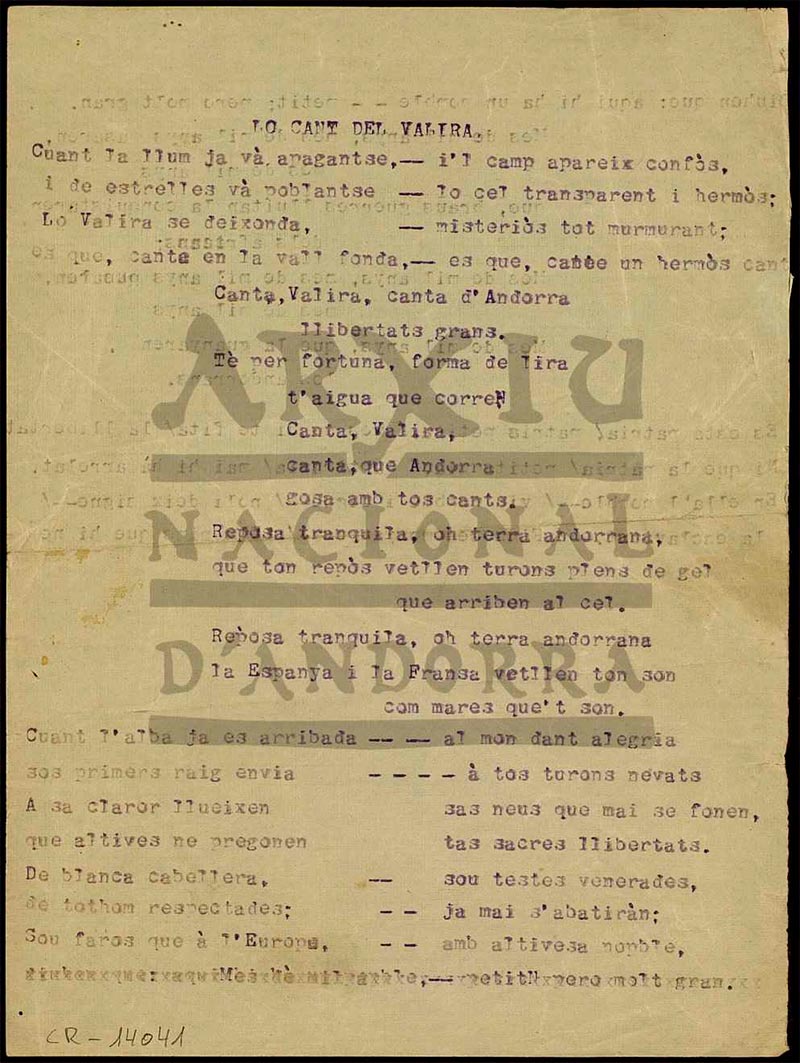 LO CANT DEL VALIRA.
Cuant la llum ja và apagantse,-- i'l camp apareix confòs,
i de estrelles và poblantse -- lo cel transparent i hermòs;
Lo Valira se deixonda, -- misteriòs tot murmurant;
es que, canta en la vall fonda,-- es que, cante un hermòs cant
Canta,Valira, canta d'Andorra
llibertats grans.
Tè per fortuna, forma de lira
t'aigua que corre
Canta, Valira,
canta,que Andorra
gosa amb tos cants.
Reposa tranquila, oh terra andorrana,
que ton repòs vetllen turons plens de gel
que arriben al cel.
Repòsa tranquila, oh terra andorrana
la Espanya i la Fransa vetllen ton son
com mares que't son.
Cuant l'alba ja es arribada -- -- al mon dant alegria
sos primers raig envia - - - - à tos turons nevats
A sa claror llueixen sas neus que mai se fonen,
que altives ne pregonen tas sacres llibertats.
De blanca cabellera, -- sou testes venerades,
de tothom respectades; - - ja mai s'abatiràn;
Sou faros que à l'Europa, - - amb altivesa nopble,
petit pero molt gran.
ARXIU
NACIONAL
D'ANDORRA
CR-14041